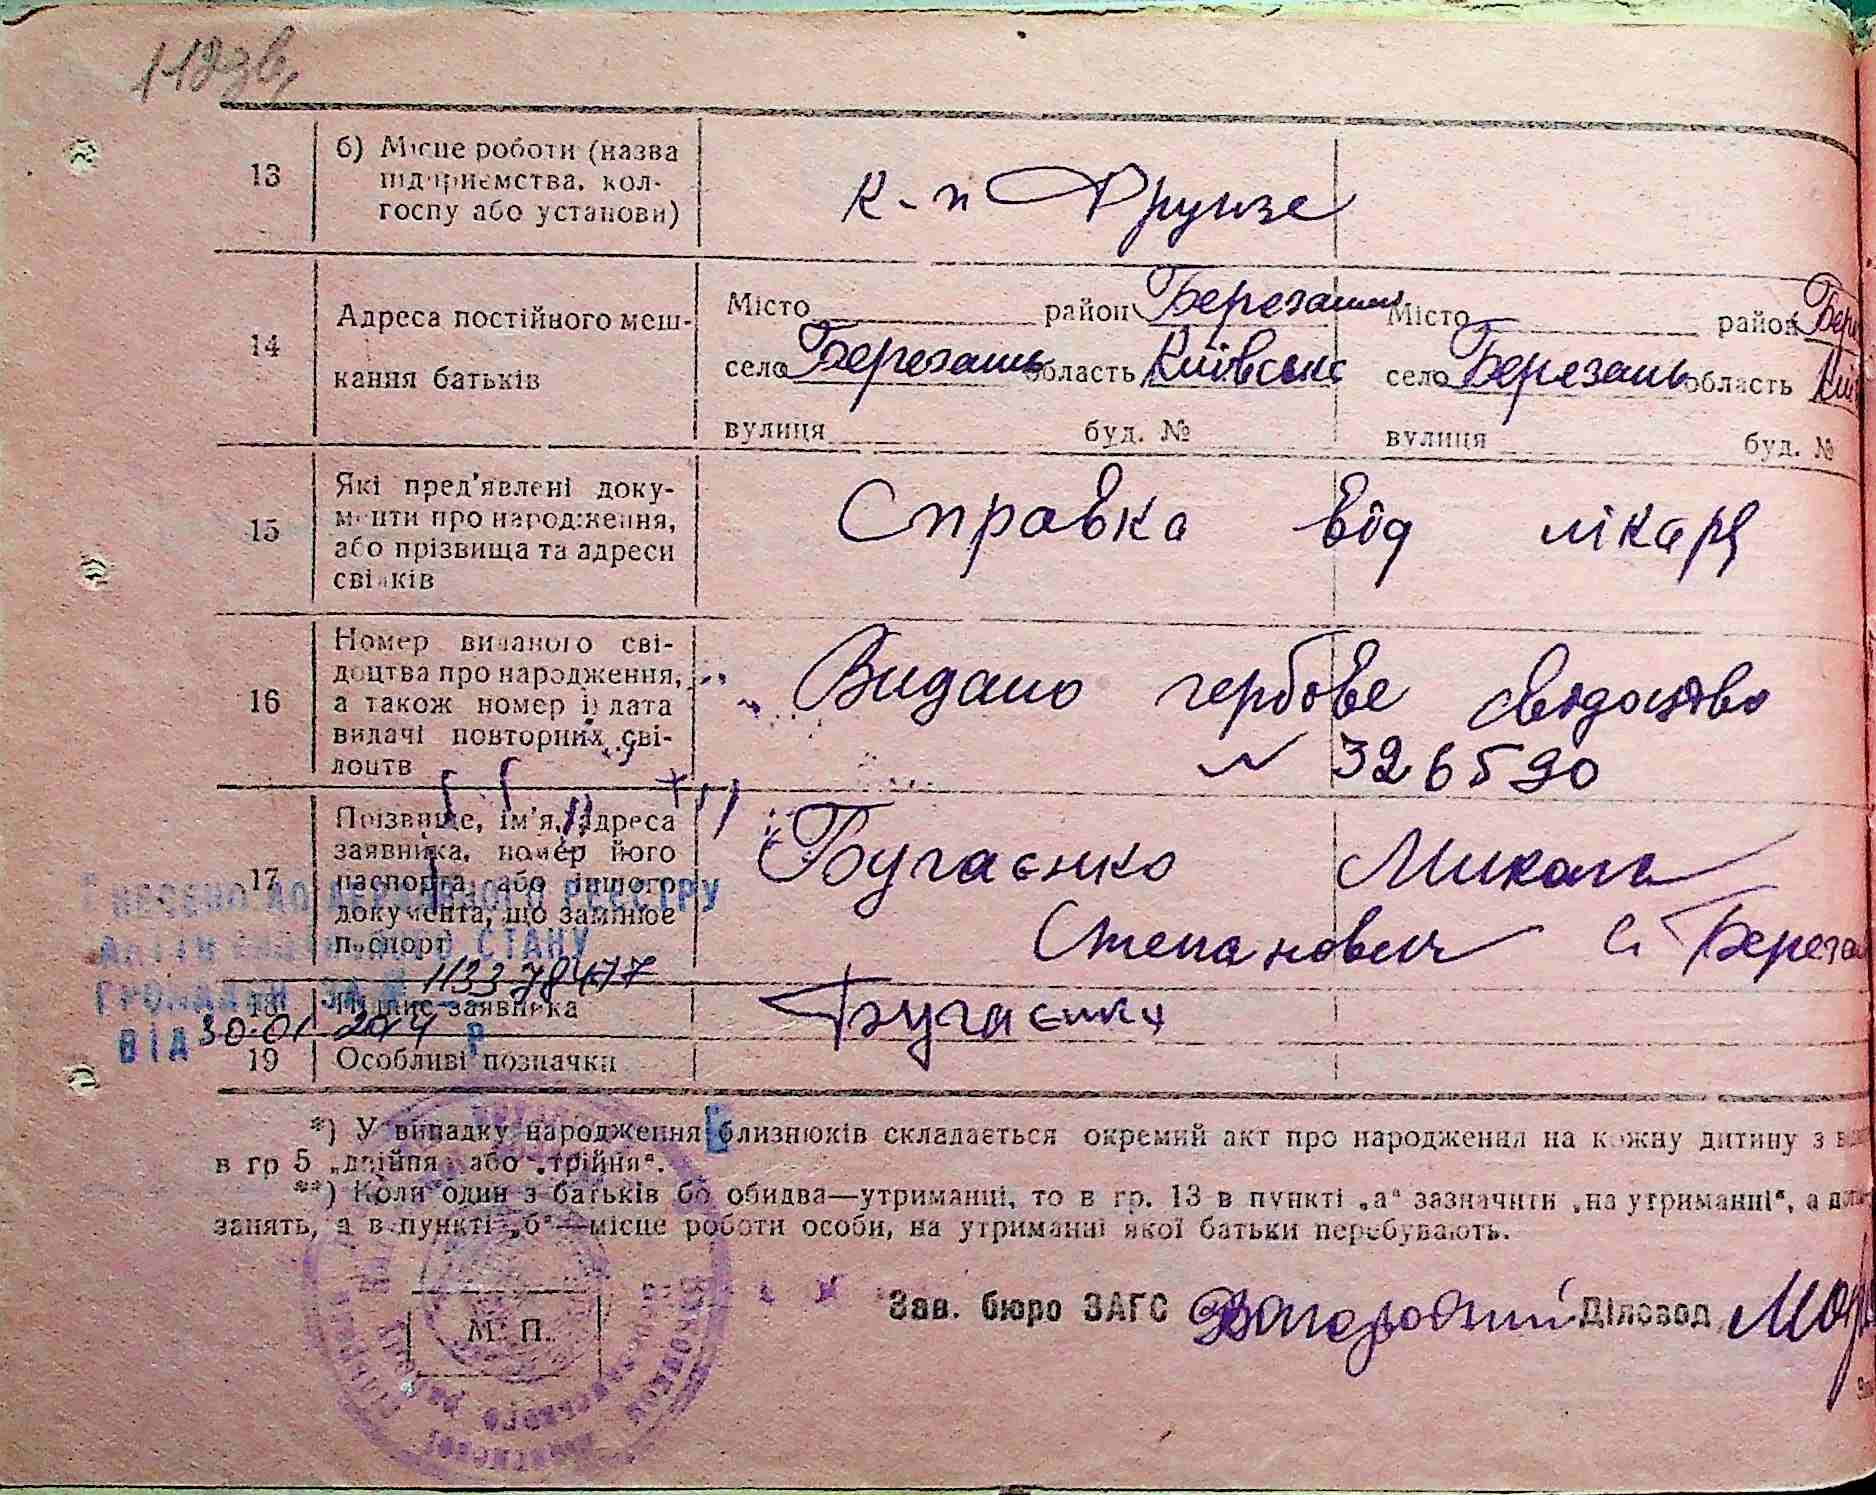 118зв.
13 б) Місце роботи (назва
підприємства, кол-
госпу або установи)
к-п Фрунзе
14 Адреса постійного меш-
кання батьків
Місто район Березанськ Місто район Бере
село Березань область Київська село Березань область Киї
вулиця буд. № вулиця буд. №
15 Які пред'явлені доку-
менти про народження,
або прізвища та адреси
свідків
Справка від лікаря
16 Номер виданого сві-
доцтва про народження,
а також номер і дата
видачі повторних сві-
доцтв
Видано гербове свідоцтво
№ 326590
17 Прізвище, ім'я, адреса
заявника, номер його
паспорта або іншого
документа, що замінює
паспорт
Бугаєнко Микола
Степанович с. Береза
ВНЕСЕНО ДО ДЕРЖАВНОГО РЕЄСТРУ
АКТІВ ЦИВІЛЬНОГО СТАНУ
ГРОМАДЯН ЗА № 113378477
ВІД 30.01 2014 р
18 Підпис заявника Бугаєнко
19 Особливі позначки
*) У випадку народження близнюків складається окремий акт про народження на кожну дитину з
в гр 5 „двійня" або „трійня".
**) Коли один з батьків бо обидва—утриманці, то в гр. 13 в пункті „а" зазначити „на утриманні", а
занять, а в пункті „б"—місце роботи особи, на утриманні якої батьки перебувають.
М. П.
Зав. бюро ЗАГС Діловод